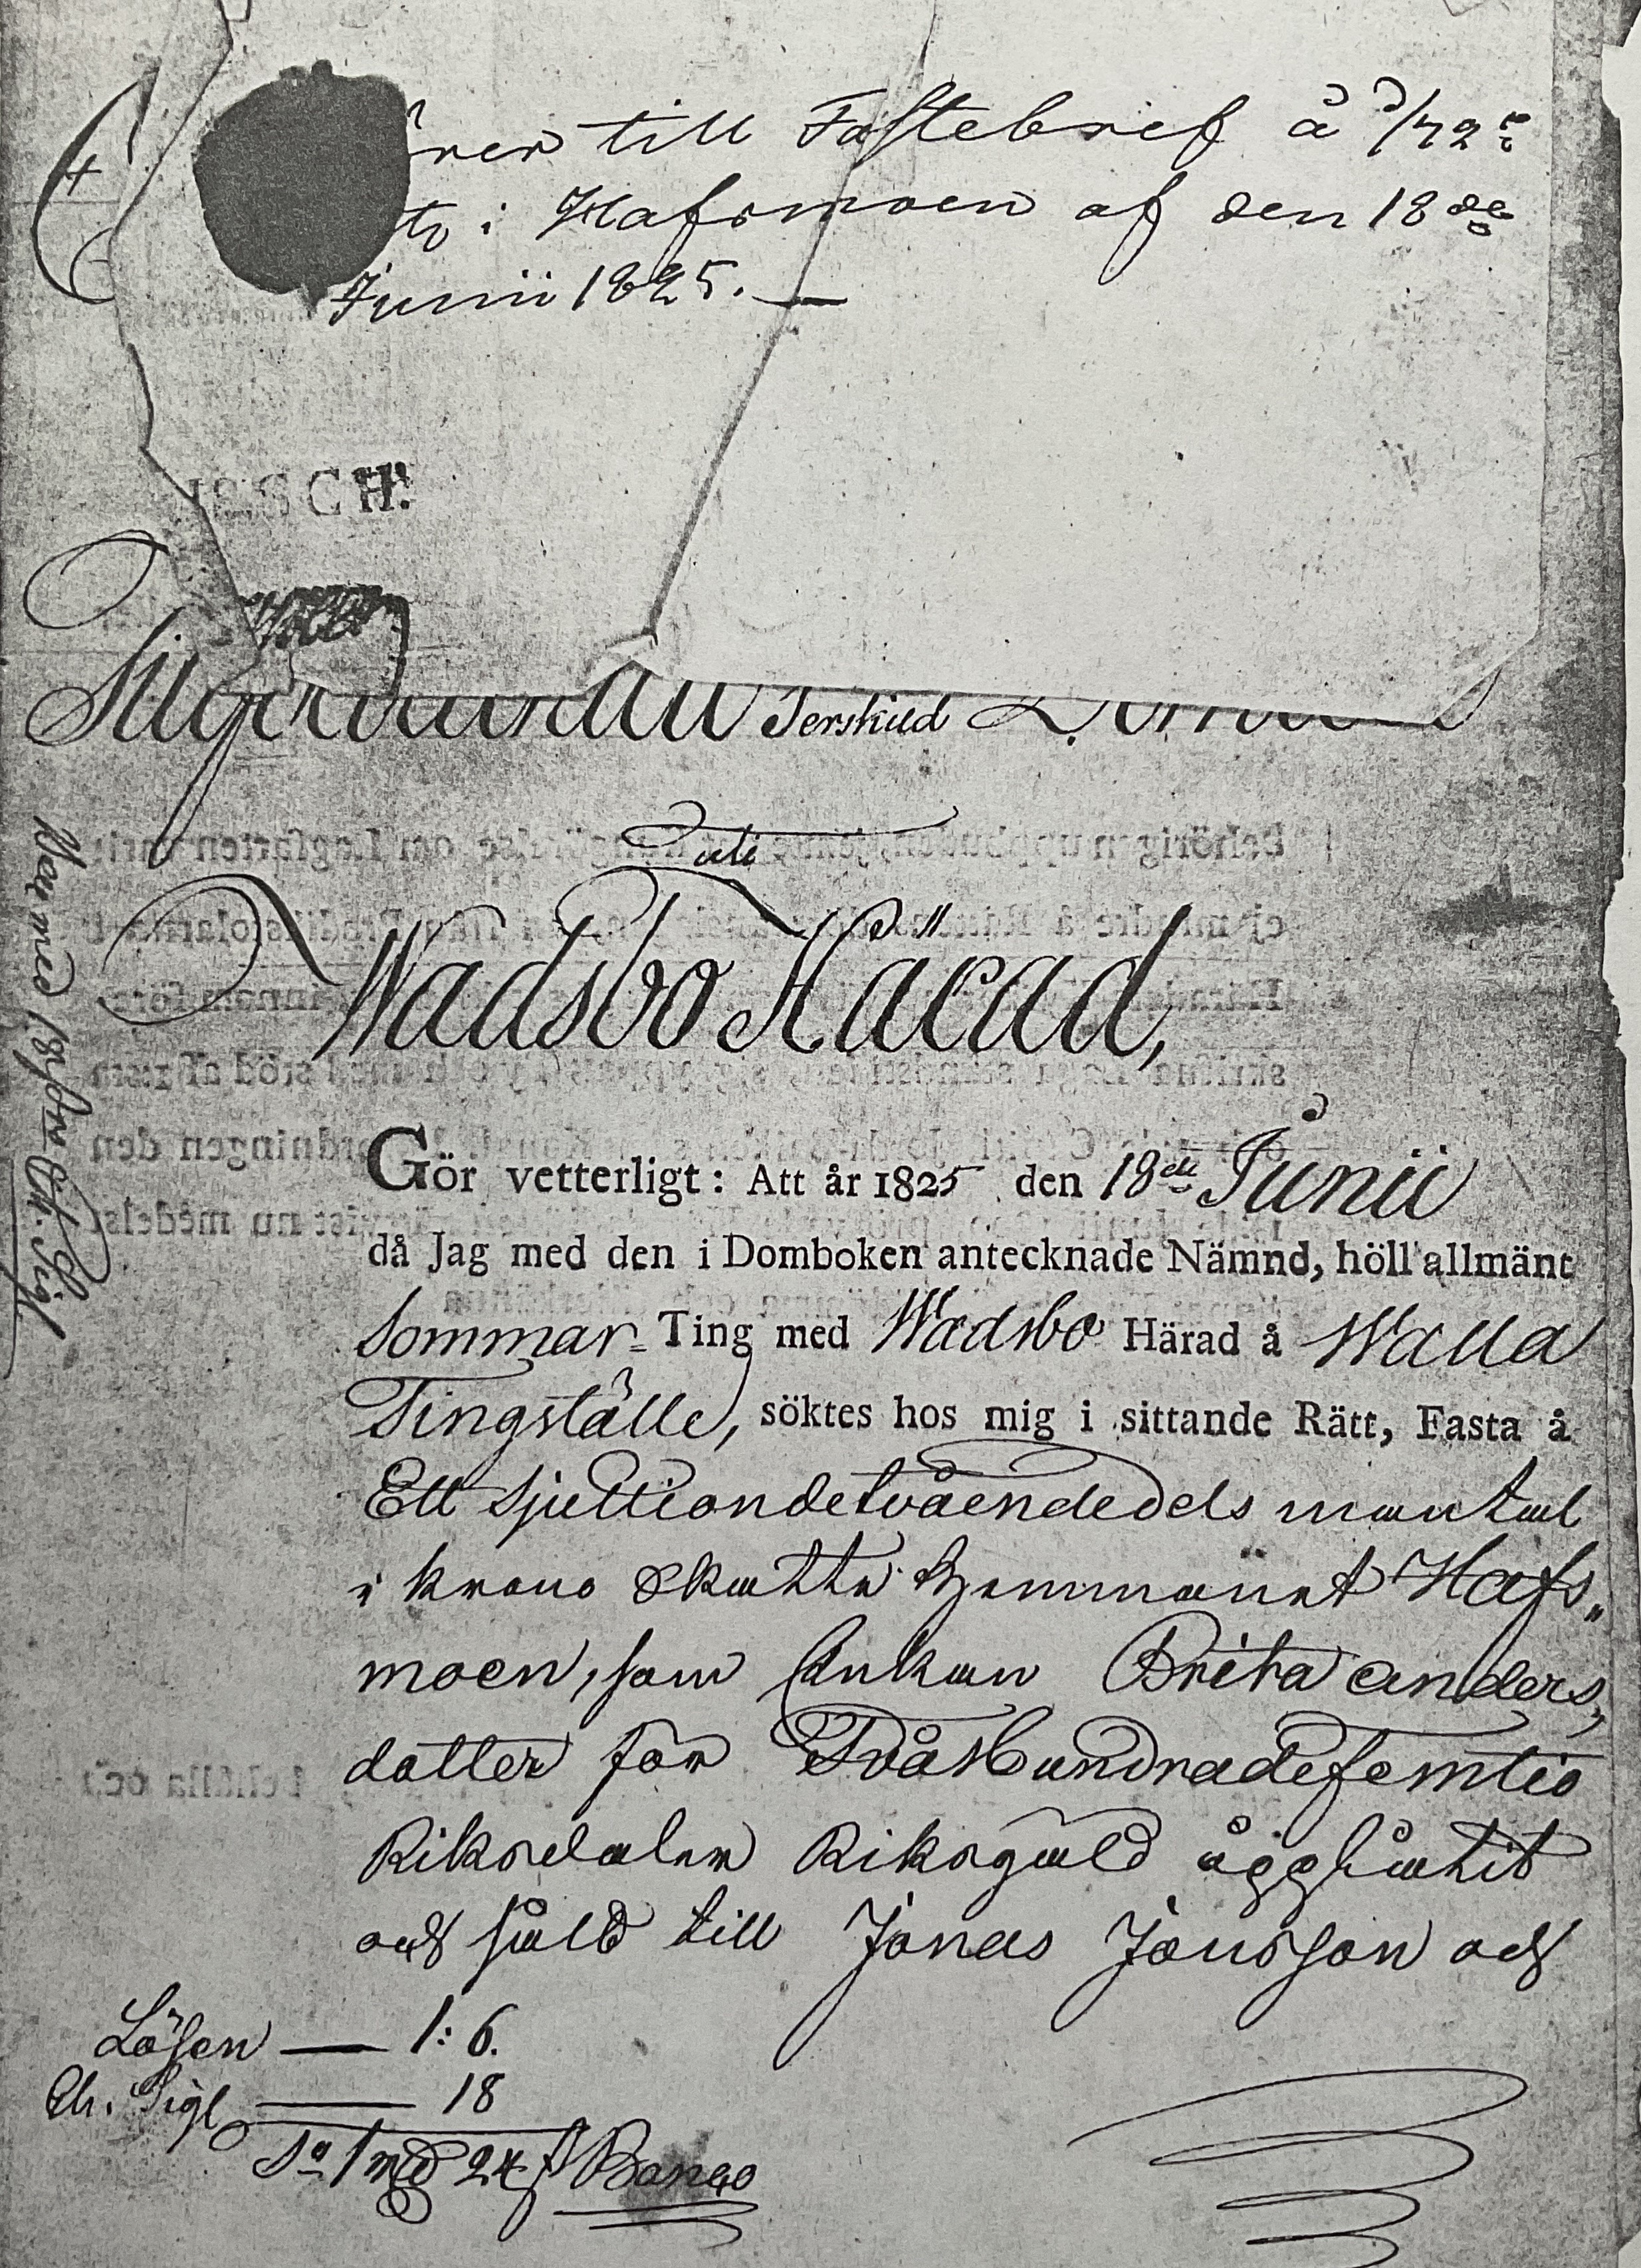 till Fastebref å 1/72
i Hafsmoen af den 18de
Junii 1825. —
SCH.
Särskild
uti
Wadsbo Härad,
Gör vetterligt: Att år 1825 den 18de Junii
då Jag med den i Domboken antecknade Nämnd, höll allmänt
Sommar-Ting med Wadsbo Härad å Walla
Tingställe, söktes hos mig i sittande Rätt, Fasta å
Ett sjuttiondetvåendedels mantal
i krono skatte hemmanet Hafs„
moen, som Enkan Brita Anders„
dotter för TvåHundradefemtio
Riksdaler Riksgäld
och såld till Jonas Jonsson och
Lösen — 1: 6.
Ch. Sigl — 18
Sa 1 rd 24 s Banco
Ch. Sigl